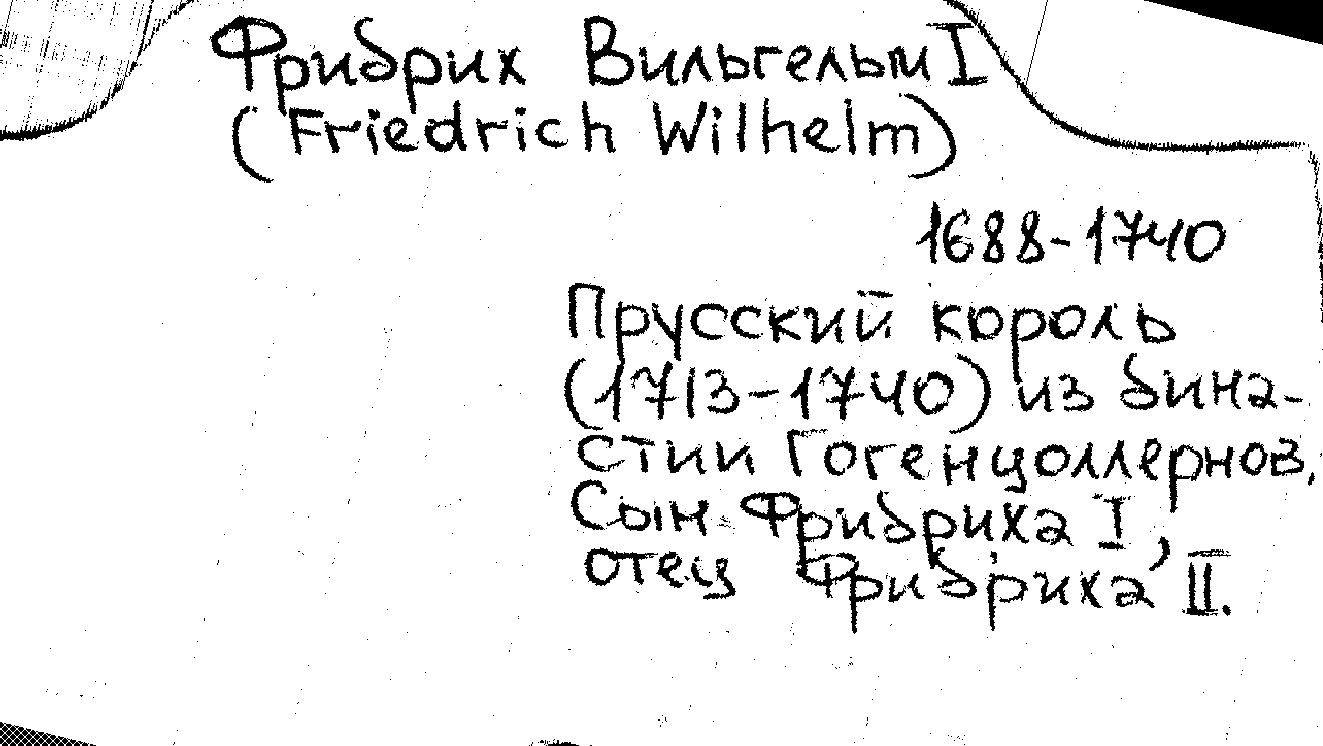 Фридрих Вильгельм I
(Friedrich Wilhelm)
1688-1740
Прусский король
(1713-1740) из дина-
стии Гогенцоллернов,
Сын Фридриха I,
отец Фридриха II.